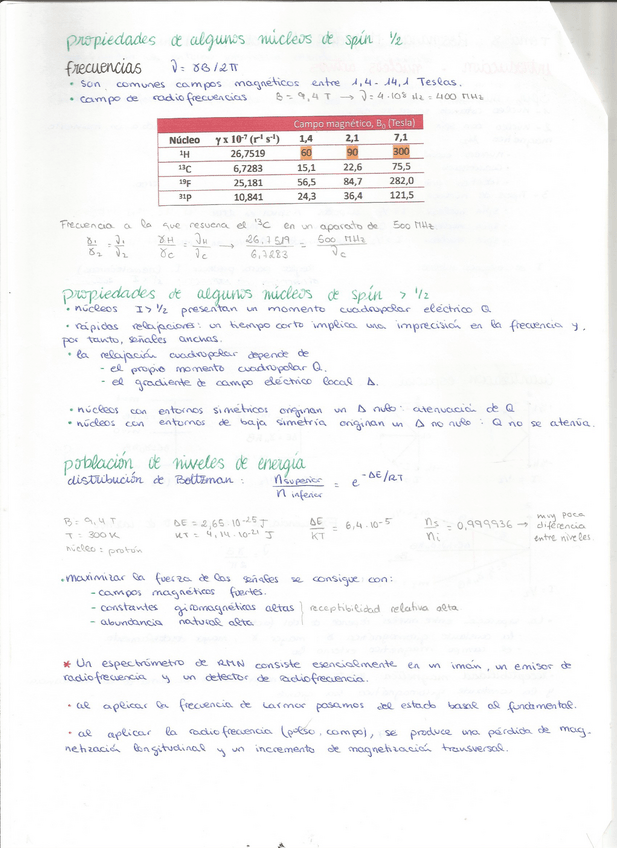 propiedades de algunos núcleos de spin 1/2
frecuencias ν = γB/2π
• son comunes campos magnéticos entre 1,4 - 14,1 Teslas.
• campo de radiofrecuencias B = 9,4 T → ν = 4·10⁸ Hz = 400 MHz
Campo magnético, B₀ (Tesla)
Núcleo γ x 10⁻⁷ (r¹ s⁻¹) 1,4 2,1 7,1
¹H 26,7519 60 90 300
¹³C 6,7283 15,1 22,6 75,5
¹⁹F 25,181 56,5 84,7 282,0
³¹P 10,841 24,3 36,4 121,5
Frecuencia a la que resuena el ¹³C en un aparato de 500 MHz
γ₁/γ₂ = ν₁/ν₂ γH/γC = νH/νC → 26,7519/6,7283 = 500 MHz/νC
propiedades de algunos núcleos de spin > 1/2
• núcleos I > 1/2 presentan un momento cuadrupolar eléctrico Q
• rápidas relajaciones: un tiempo corto implica una imprecisión en la frecuencia y,
por tanto, señales anchas.
• la relajación cuadrupolar depende de
- el propio momento cuadrupolar Q.
- el gradiente de campo eléctrico local Δ.
• núcleos con entornos simétricos originan un Δ nulo: atenuación de Q
• núcleos con entornos de baja simetría originan un Δ no nulo: Q no se atenúa.
población de niveles de energía
distribución de Boltzman: n superior/n inferior = e^-ΔE/KT
B = 9,4 T ΔE = 2,65·10⁻²⁵ J ΔE/KT = 6,4·10⁻⁵ ns/ni = 0,999936 → muy poca diferencia entre niveles
T = 300 K KT = 4,14·10⁻²¹ J
núcleo: protón
• Maximizar la fuerza de las señales se consigue con:
- campos magnéticos fuertes.
- constantes giromagnéticas altas } receptibilidad relativa alta
- abundancia natural alta
* Un espectrómetro de RMN consiste esencialmente en un imán, un emisor de
radiofrecuencia y un detector de radiofrecuencia.
• al aplicar la frecuencia de Larmor pasamos del estado basal al fundamental.
• al aplicar la radiofrecuencia (pulso, campo), se produce una pérdida de mag-
netización longitudinal y un incremento de magnetización transversal.